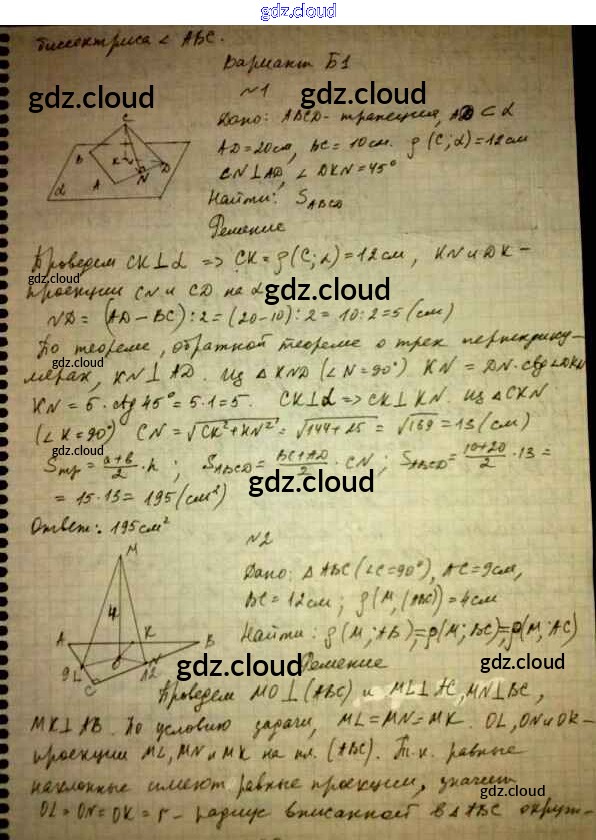 gdz.cloud
биссектриса ∠ ABC.
Вариант Б1
№1
Дано: ABCD - трапеция, AD ⊂ α
AD = 20см, BC = 10см. ρ(C; α) = 12см
CN ⊥ AD, ∠ DKN = 45°
Найти: S_ABCD
Решение
Проведем CK ⊥ α => CK = ρ(C; α) = 12см, KN и DK -
проекции CN и CD на α
ND = (AD - BC) : 2 = (20 - 10) : 2 = 10 : 2 = 5 (см)
По теореме, обратной теореме о трех перпендику-
лярах, KN ⊥ AD. Из △ KND (∠N = 90°) KN = DN · ctg ∠DKN
KN = 5 · ctg 45° = 5·1 = 5. CK ⊥ α => CK ⊥ KN. Из △ CKN
(∠K = 90°) CN = √CK² + KN² = √144 + 25 = √169 = 13 (см)
Sтр = a+b/2 · h ; S_ABCD = BC+AD/2 · CN ; S_ABCD = 10+20/2 · 13 =
= 15·13 = 195 (см²)
Ответ: 195см²
№2
Дано: △ ABC (∠C = 90°), AC = 9см,
BC = 12см ; ρ(M, (ABC)) = 4см
Найти: ρ(M; AB) = ρ(M; BC) = ρ(M; AC)
Решение
Проведем MO ⊥ (ABC) и ML ⊥ AC, MN ⊥ BC,
MK ⊥ AB. По условию задачи, ML = MN = MK. OL, ON и OK -
проекции ML, MN и MK на пл. (ABC). Т.к. равные
наклонные имеют равные проекции, значит
OL = ON = OK = r - радиус вписанной в △ ABC окруж-